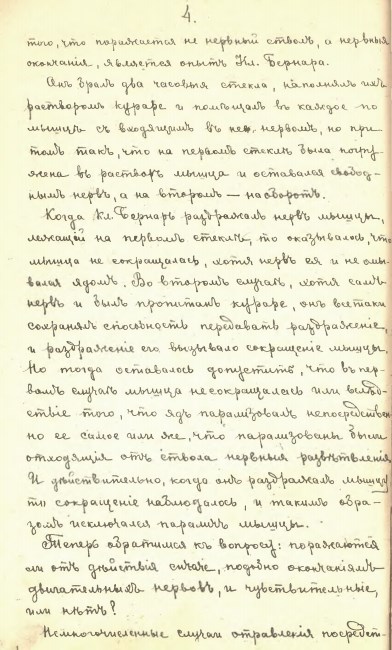 4.
того, что поражается не нервный стволъ, а нервныя
окончанія, является опытъ Кл. Бернара.
Онъ бралъ два часовыя стекла, наполнялъ ихъ
растворомъ кураре и помѣщалъ въ каждое по
мышцѣ съ входящимъ въ нее нервомъ, но при
томъ такъ, что на первомъ стеклѣ была погру-
жена въ растворъ мышца и оставался свобод-
нымъ нервъ, а на второмъ — наоборотъ.
Когда Кл. Бернаръ раздражалъ нервъ мышцы,
лежащей на первомъ стеклѣ, то оказывалось, что
мышца не сокращалась, хотя нервъ ея и не омы-
вался ядомъ. Во второмъ случаѣ, хотя самъ
нервъ и былъ пропитанъ кураре, онъ всетаки
сохранялъ способность передавать раздраженіе,
и раздраженіе его вызывало сокращеніе мышцы.
Но тогда оставалось допустить, что въ пер-
вомъ случаѣ мышца не сокращалась или вслѣд-
ствіе того, что ядъ парализовалъ непосредствен-
но ее самое или же, что парализованы были
отходящія отъ ствола нервныя развѣтвленія.
И дѣйствительно, когда онъ раздражалъ мышцу,
то сокращеніе наблюдалось, и такимъ обра-
зомъ исключался параличъ мышцы.
Теперь обратимся къ вопросу: поражаются
ли отъ дѣйствія кураре, подобно окончаніямъ
двигательныхъ нервовъ, и чувствительные,
или нѣтъ?
Немногочисленные случаи отравленія посредст-